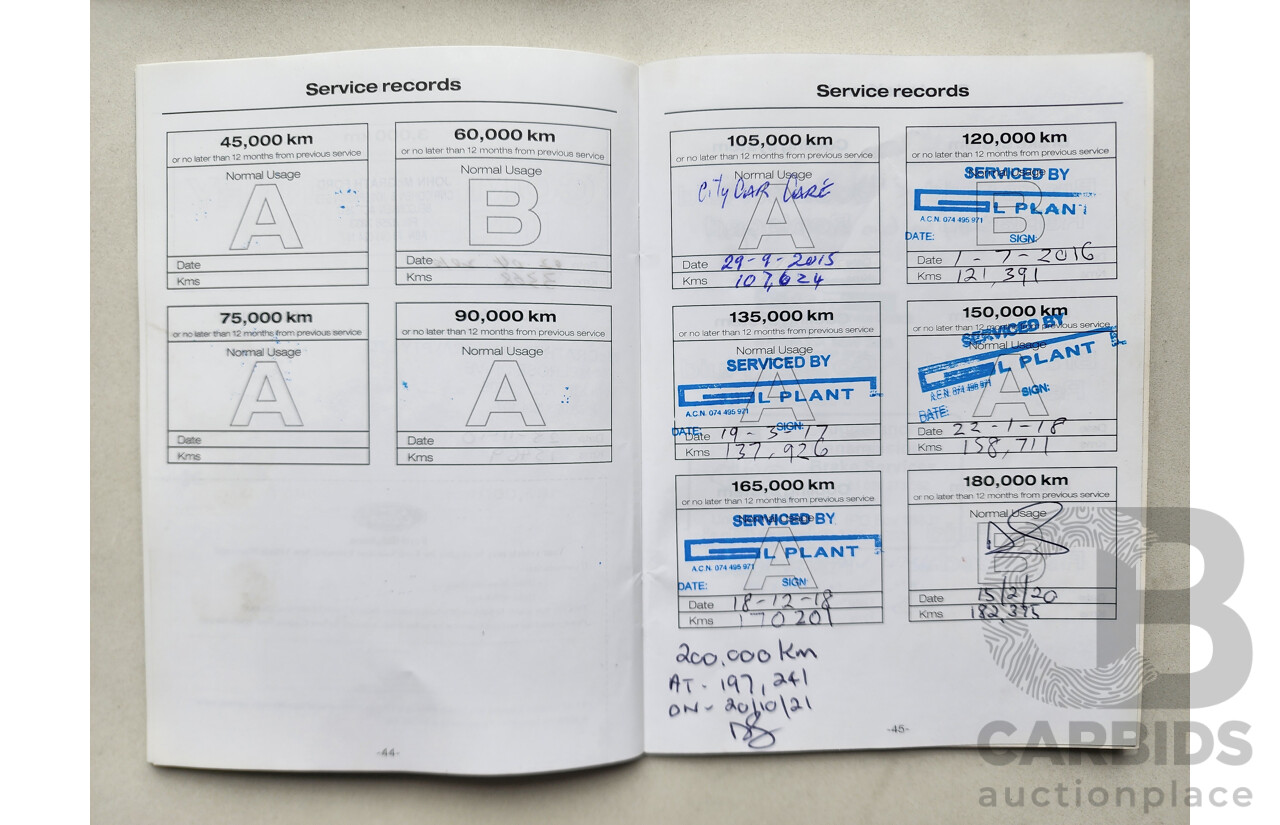 Service records
45,000 km
or no later than 12 months from previous service
Normal Usage
A
Date
Kms
60,000 km
or no later than 12 months from previous service
Normal Usage
B
Date
Kms
75,000 km
or no later than 12 months from previous service
Normal Usage
A
Date
Kms
90,000 km
or no later than 12 months from previous service
Normal Usage
A
Date
Kms
-44-
Service records
105,000 km
or no later than 12 months from previous service
Normal Usage
A
City CAR CARE
Date 29-9-2015
Kms 107,624
120,000 km
or no later than 12 months from previous service
Normal Usage
B
SERVICED BY
GL PLANT
A.C.N. 074 495 971
DATE: SIGN:
Date 1-7-2016
Kms 121,391
135,000 km
or no later than 12 months from previous service
Normal Usage
A
SERVICED BY
GL PLANT
A.C.N. 074 495 971
DATE: SIGN:
Date 19-3-17
Kms 137,926
150,000 km
or no later than 12 months from previous service
Normal Usage
A
SERVICED BY
GL PLANT
A.C.N. 074 495 971
DATE: SIGN:
Date 22-1-18
Kms 158,711
165,000 km
or no later than 12 months from previous service
Normal Usage
A
SERVICED BY
GL PLANT
A.C.N. 074 495 971
DATE: SIGN:
Date 18-12-18
Kms 170201
180,000 km
or no later than 12 months from previous service
Normal Usage
B
Date 15/2/20
Kms 182,395
200,000 km
AT - 197,241
ON - 20/10/21
-45-
CARBIDS
auctionplace